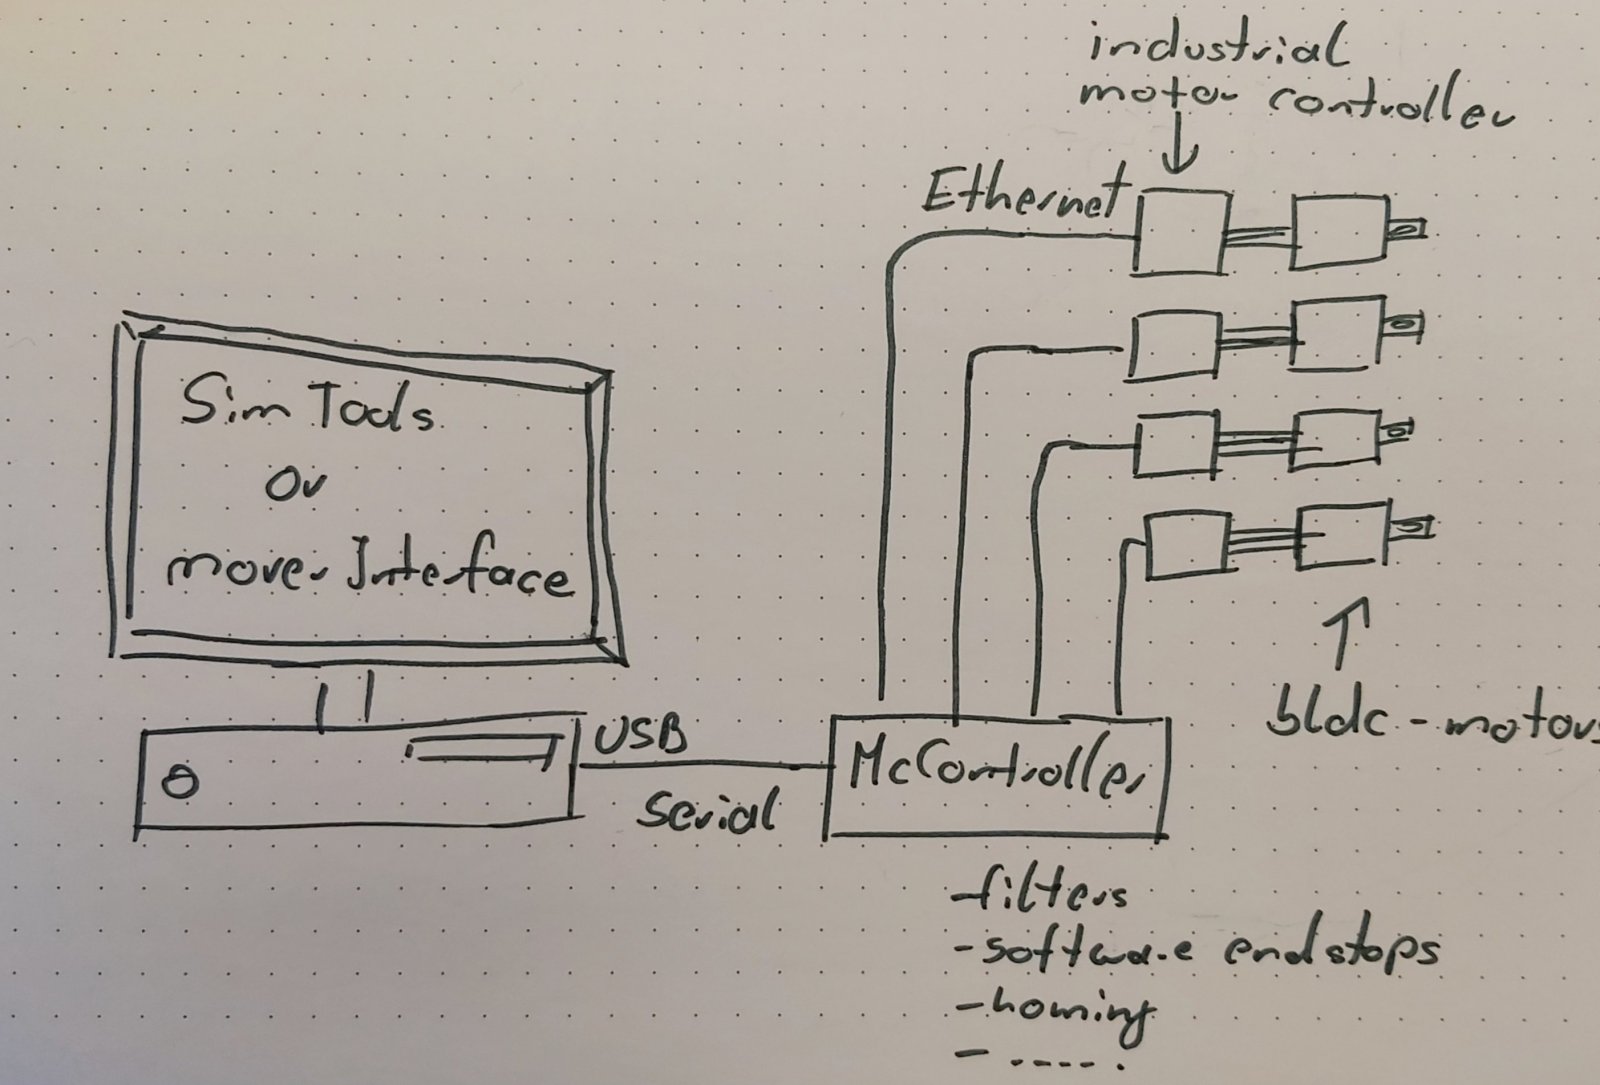 industrial
motor controller
Ethernet
Sim Tools
Or
mover Interface
USB
Serial
McController
bldc - motors
- filters
- software endstops
- homing
- ..... .